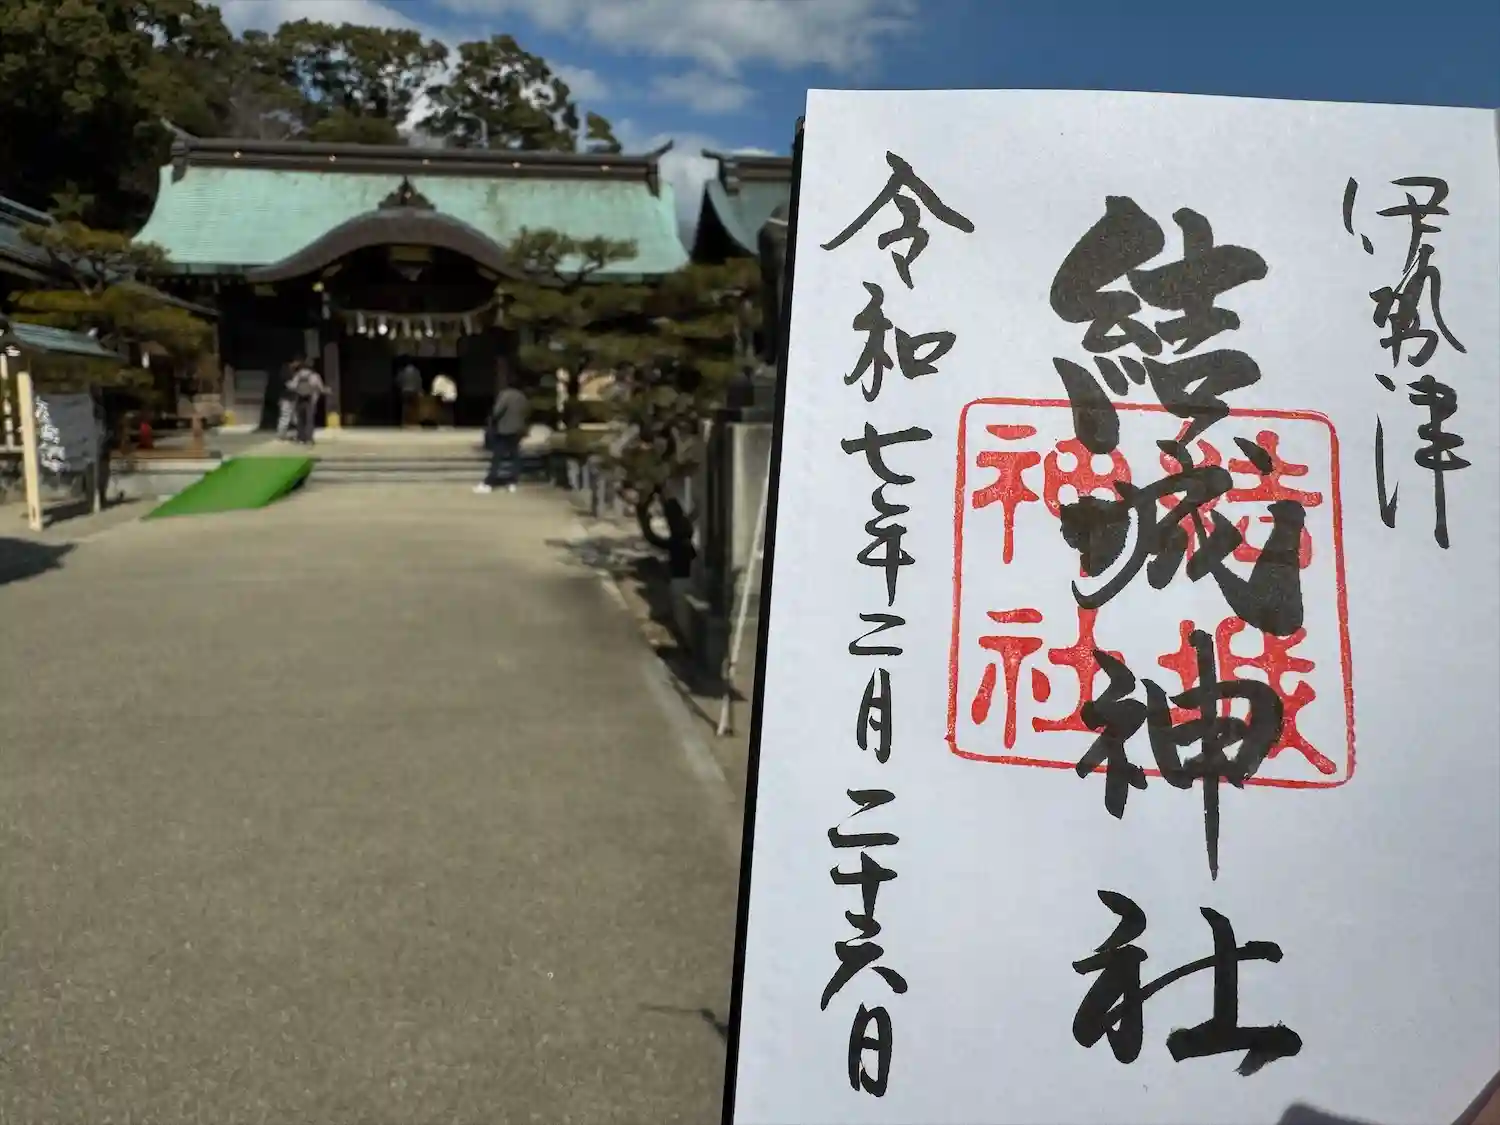 伊勢津
結城神社
結城
神社
令和七年二月二十六日